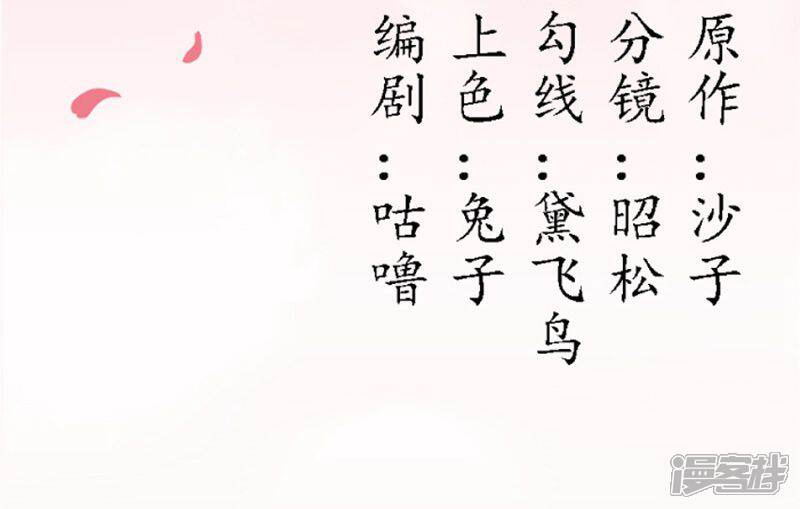 原作：沙子
分镜：昭松
勾线：黛飞鸟
上色：兔子
编剧：咕噜
漫客栈